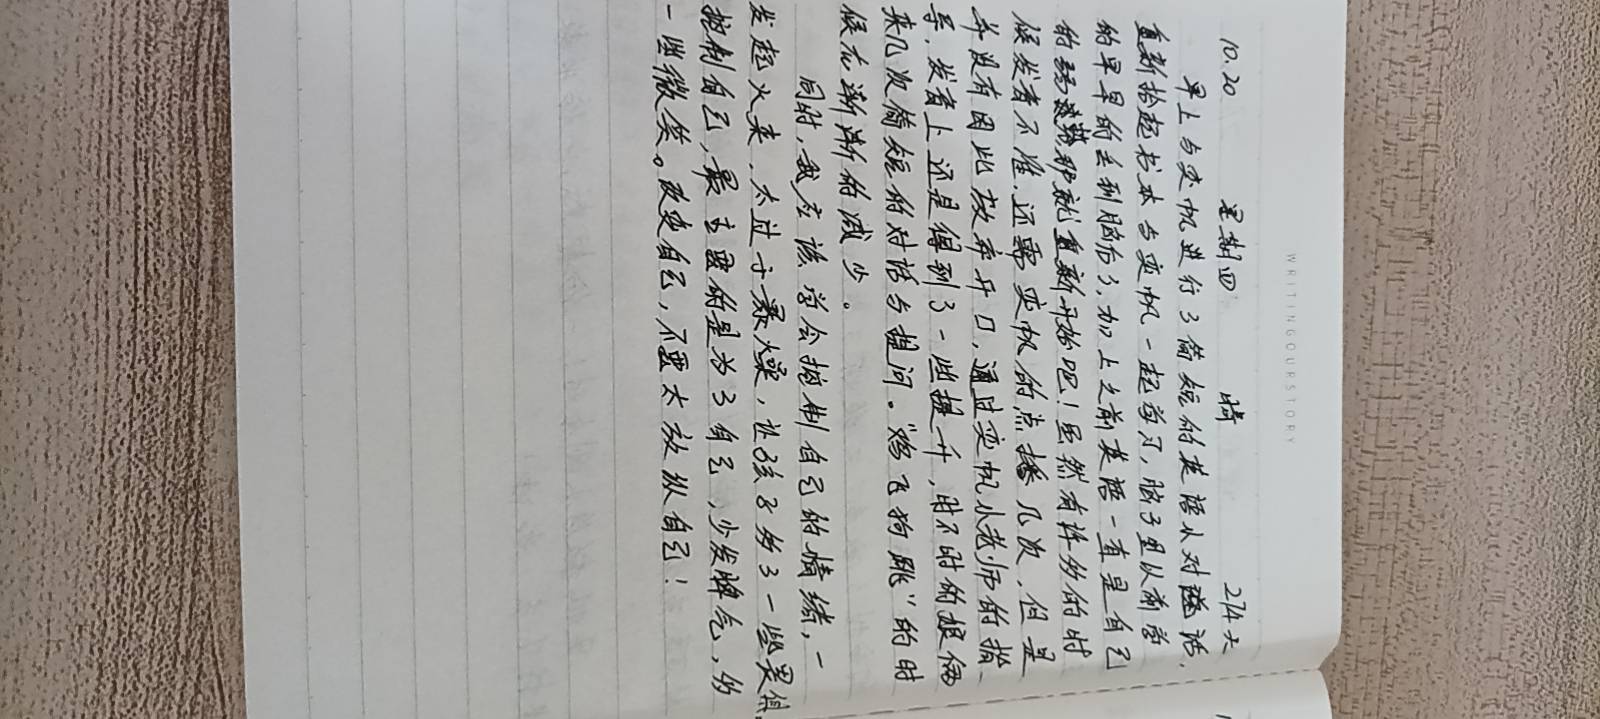 WRITINGOURSTORY
10.20 星期四 晴 274天
早上与奕帆进行了简短的英语从对话,
重新拾起书本与奕帆一起学习,脑子里以前学
的早早的丢到脑后了,加上之前英语一直是自己
的弱势,那就重新开始吧!虽然有许多的时
候发音不准,还需奕帆的点播几次,但是
并没有因此放弃开口,通过奕帆小老师的指
导,发音上还是得到了一些提升,时不时的
来几次简短的对话与提问。“鸡飞狗跳”的时
候在渐渐的减少。
同时,我应该学会控制自己的情绪,一
发起火来,太过于暴燥,让孩子多了一些畏惧,
控制自己,最主要的是为了自己,少发脾气,多
一些微笑。改变自己,不要太放纵自己!